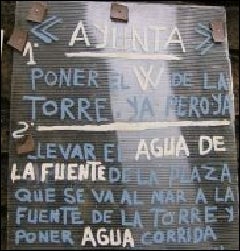 « AYUNTA »
1.
PONER EL W DE LA
TORRE. YA PERO YA
2.
LLEVAR EL AGUA DE
LA FUENTE DE LA PLAZA
QUE SE VA AL MAR A LA
FUENTE DE LA TORRE Y
PONER AGUA CORRIDA